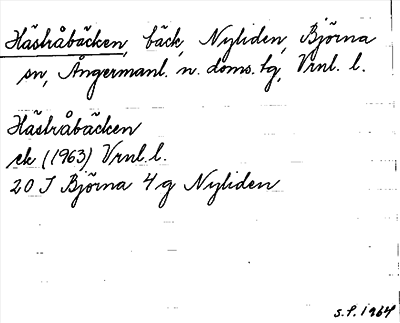 Hästråbäcken, bäck, Nyliden, Björna
sn, Ångermanl. n. doms. tg, Vrnl. l.
Hästråbäcken
ek (1963) Vrnl. l.
20 J Björna 4 g Nyliden
S.F. 1964